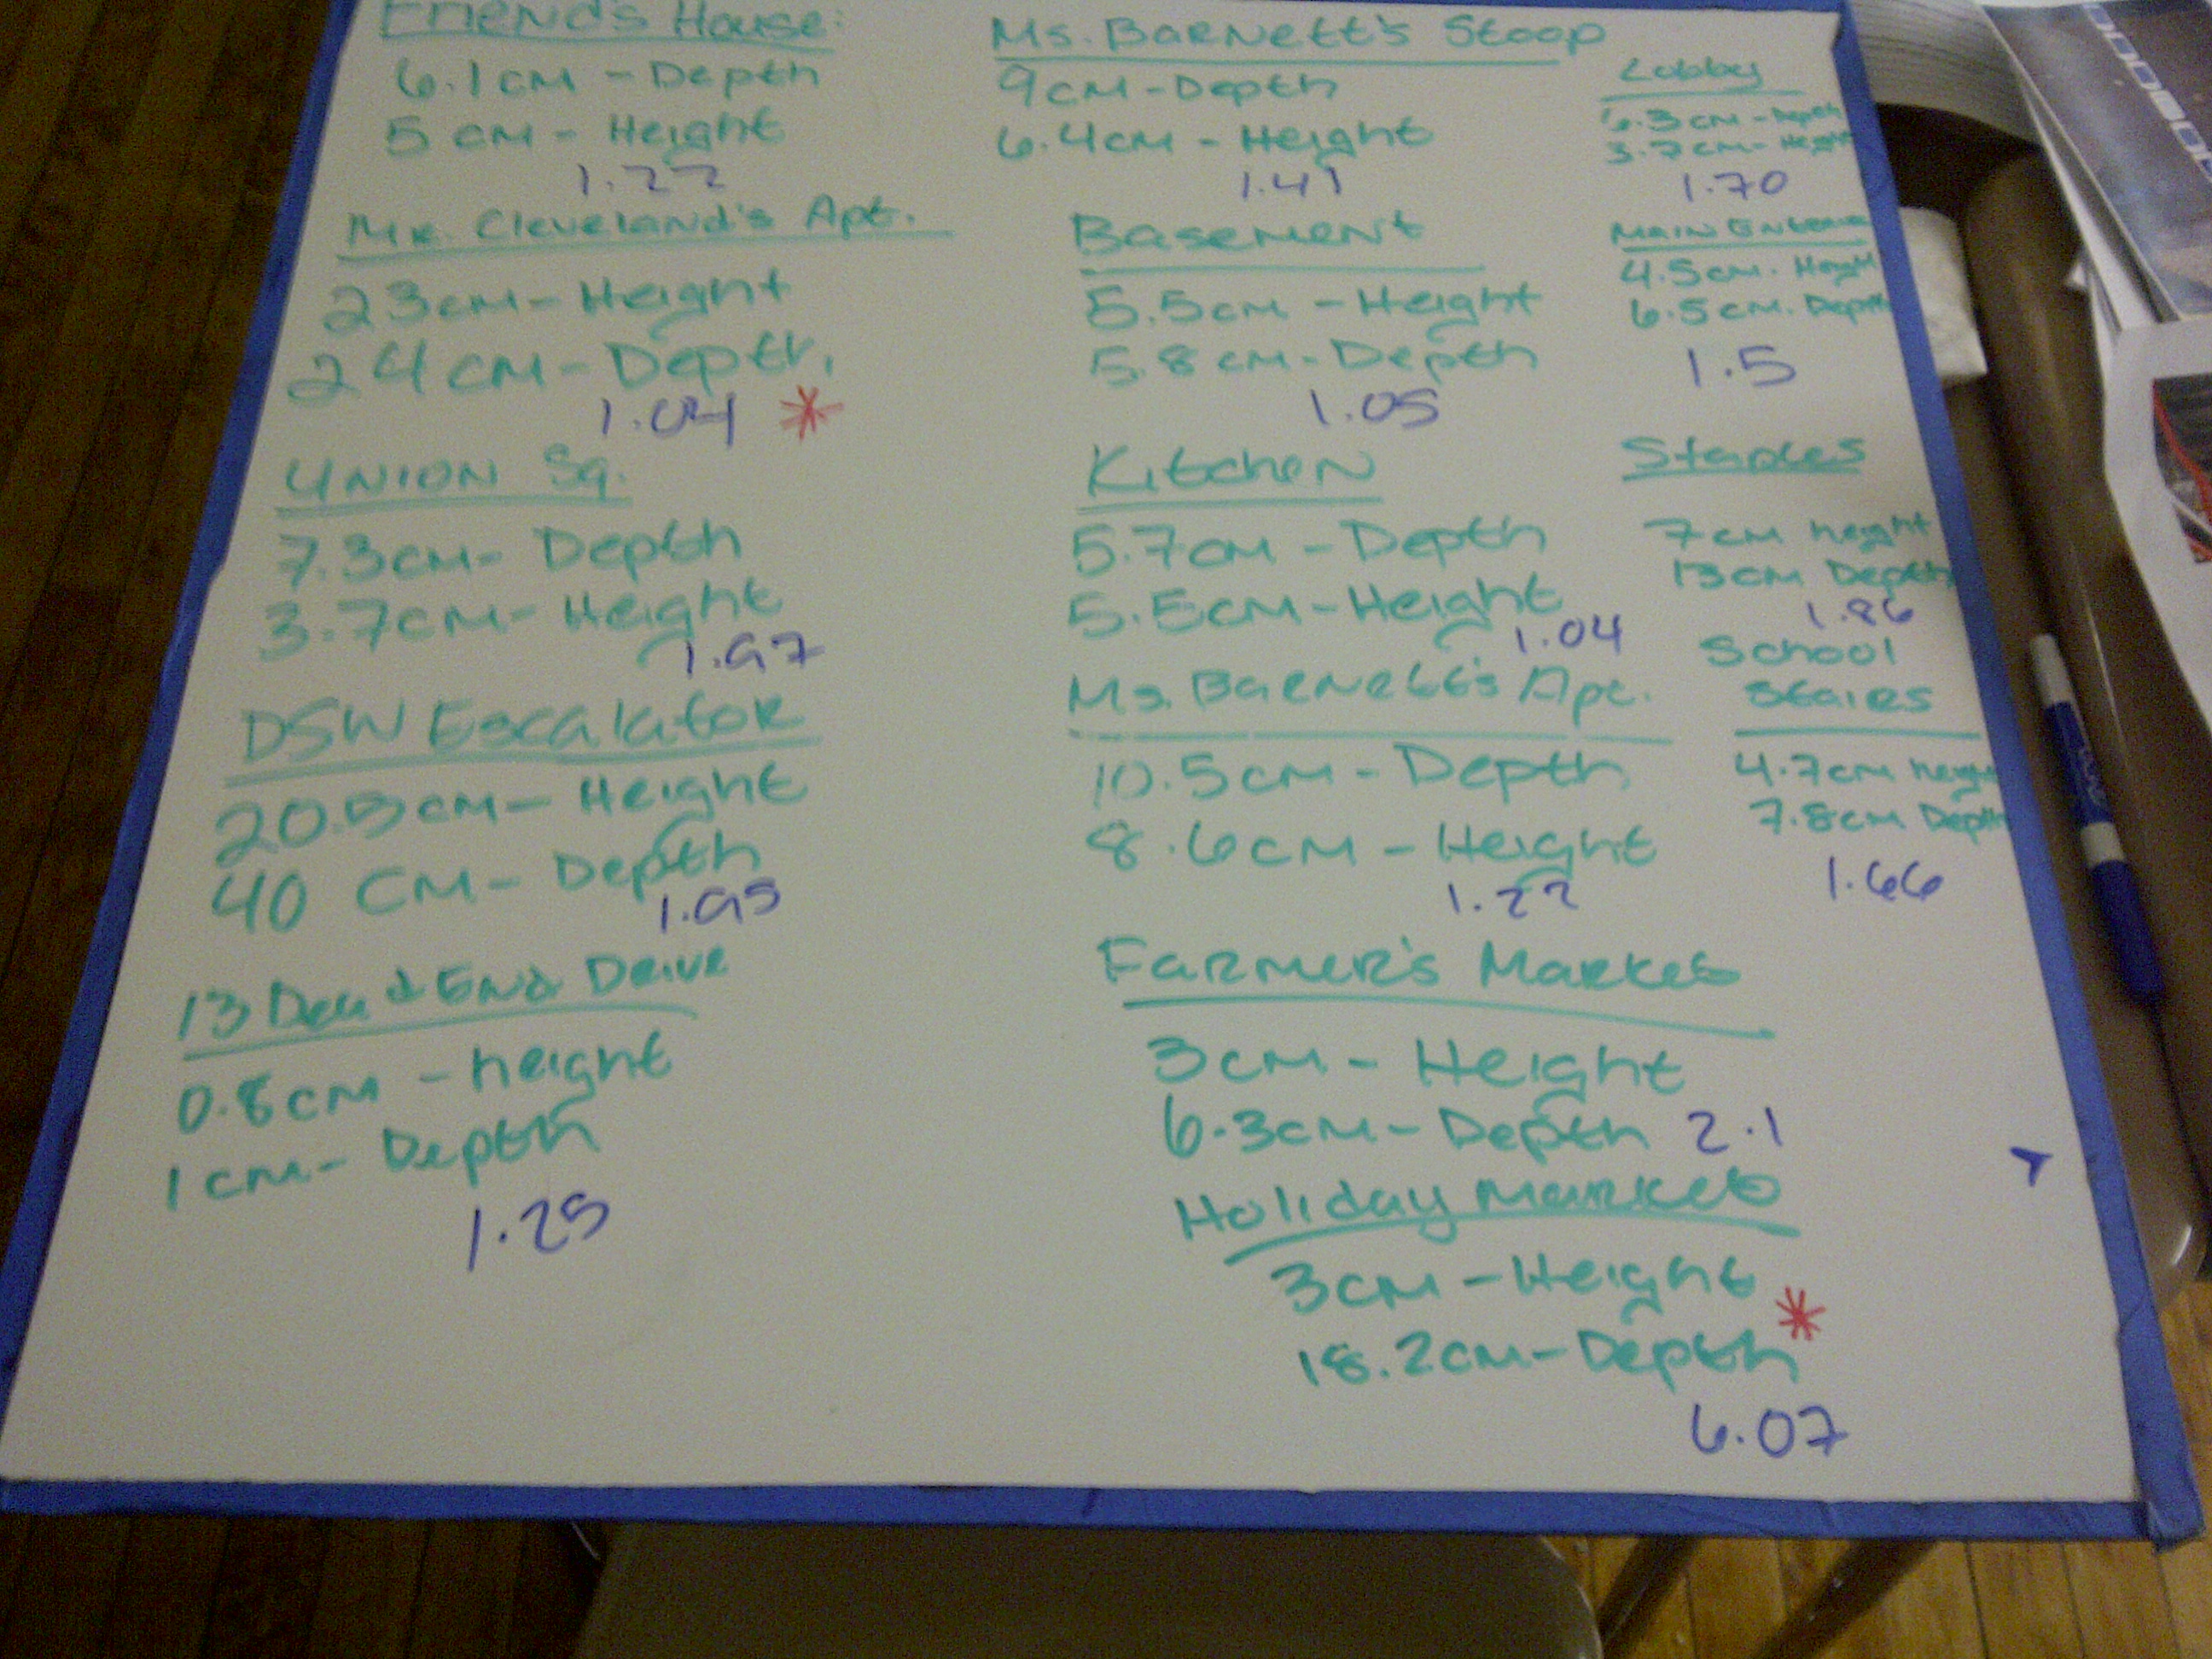 Friend's House:
6.1cm - Depth
5 cm - Height
1.22
Mr. Cleveland's Apt.
23cm - Height
24cm - Depth
1.04 *
Union Sq.
7.3cm - Depth
3.7cm - Height
1.97
DSW Escalator
20.5cm - Height
40 cm - Depth
1.95
13 Dead End Drive
0.8cm - height
1cm - Depth
1.25
Ms. Barnett's Stoop
9cm - Depth
6.4cm - Height
1.41
Basement
5.5cm - Height
5.8cm - Depth
1.05
Kitchen
5.7cm - Depth
5.5cm - Height
1.04
Ms. Barnett's Apt.
10.5cm - Depth
8.6cm - Height
1.22
Farmer's Market
3cm - Height
6.3cm - Depth 2.1
Holiday Market
3cm - Height
*
18.2cm - Depth
6.07
Lobby
6.3cm - Depth
3.7cm - Height
1.70
Main
4.5cm. Height
6.5cm. Depth
1.5
Staples
7cm height
13cm Depth
1.86
School
Stairs
4.7cm height
7.8cm Depth
1.66